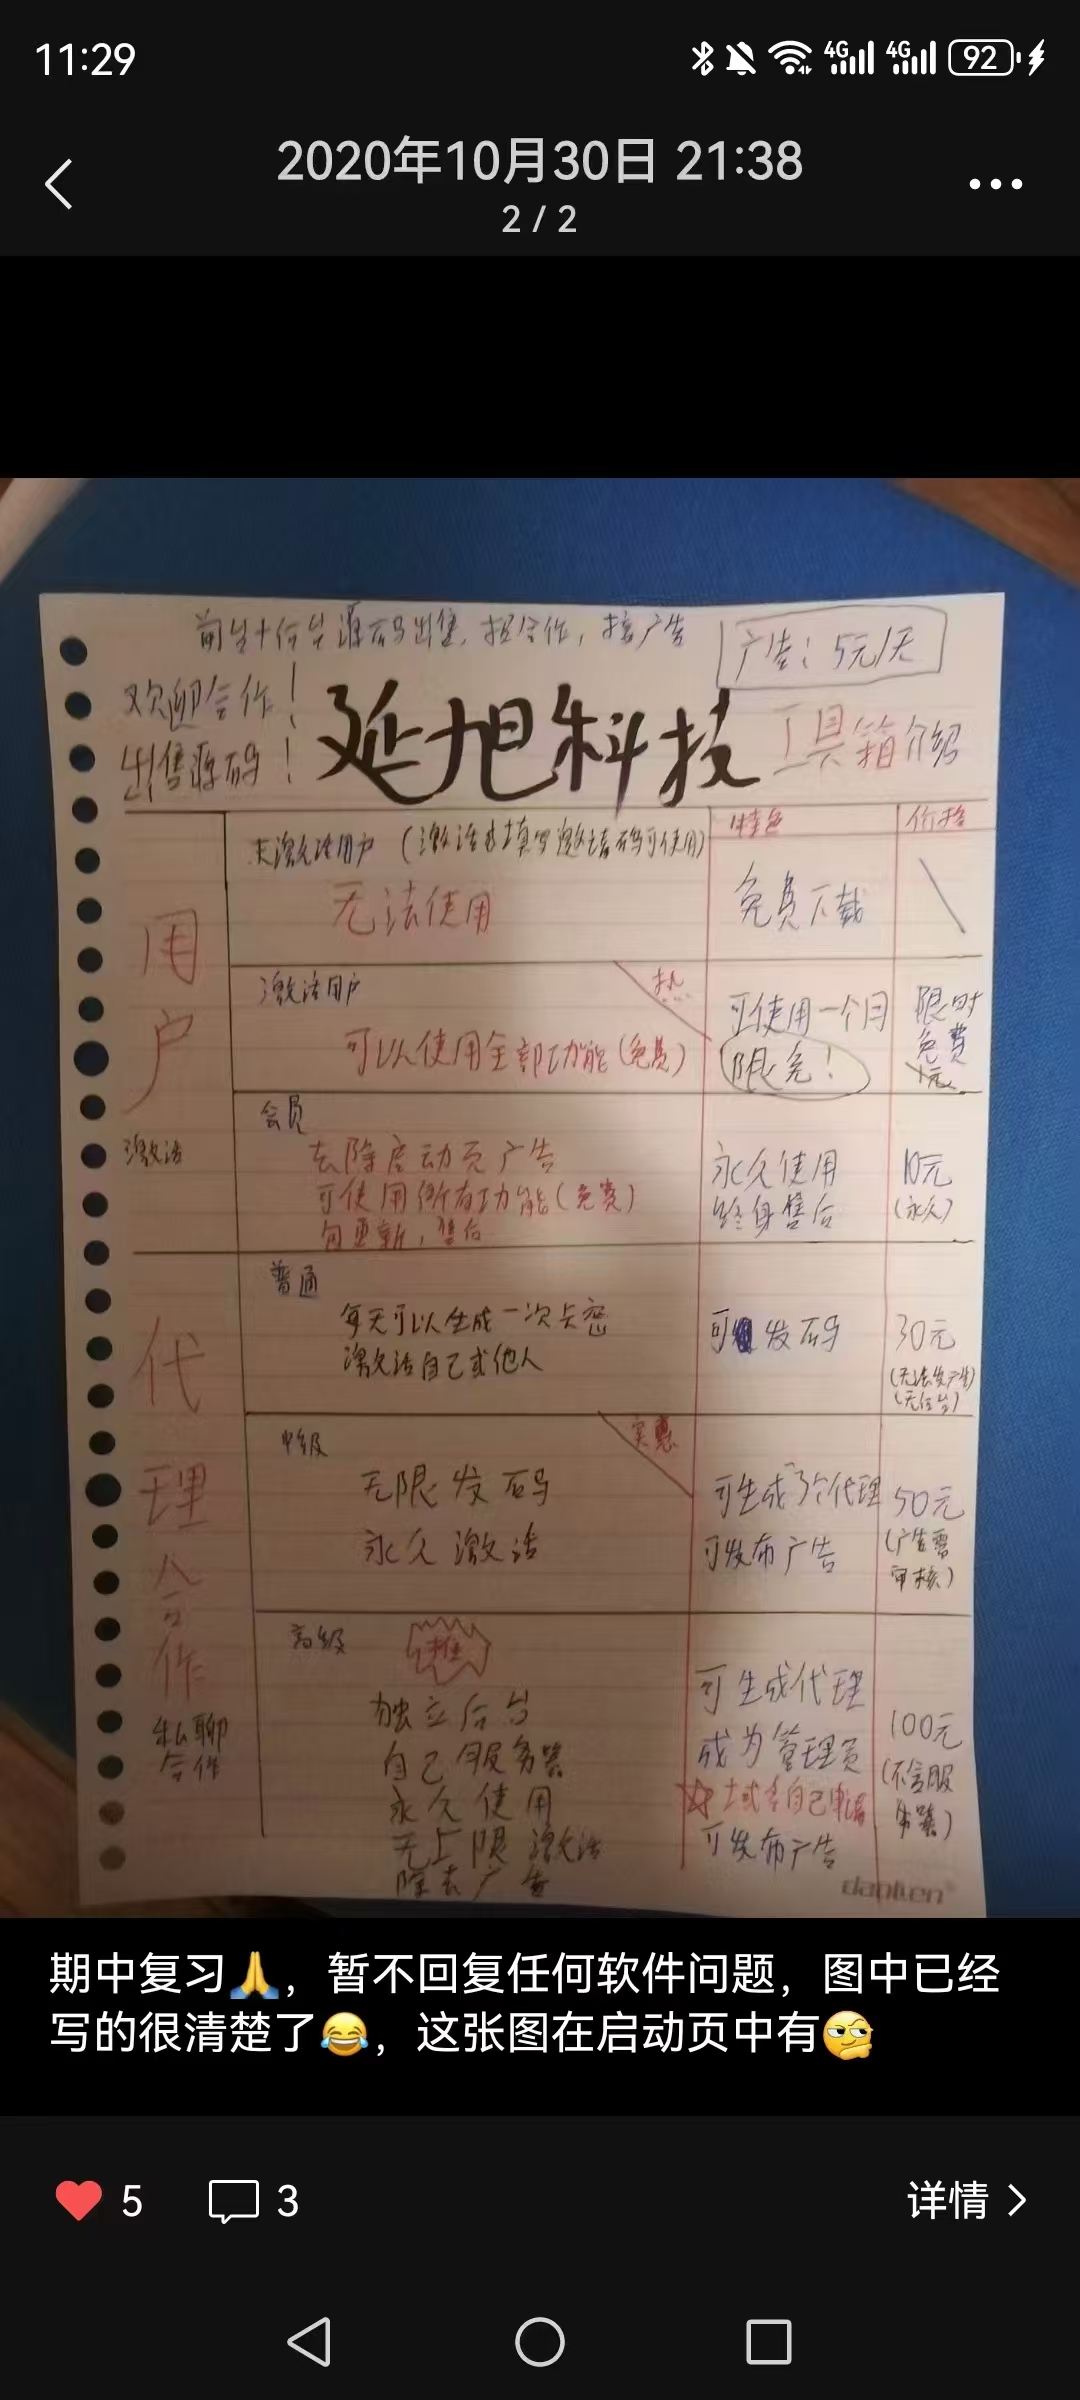 11:29
4G 4G 92
2020年10月30日 21:38
2 / 2
前台+后台源码出售,招合作,接广告
广告:5元/天
欢迎合作!
出售源码!
延旭科技
工具箱介绍
特色
价格
用户
激活
未激活用户(激活或填写邀请码可使用)
无法使用
免费下载
激活用户
热
可以使用全部功能(免费)
可使用一个月
限免!
限时
免费
1元
会员
去除启动页广告
可使用所有功能(免费)
包更新,售后
永久使用
终身售后
10元
(永久)
代理合作
私聊
合作
普通
每天可以生成一次卡密
激活自己或他人
可发码
30元
(无法发广告)
(无后台)
中级
实惠
无限发码
永久激活
可生成3个代理
可发布广告
50元
(广告需
审核)
高级
推
独立后台
自己服务器
永久使用
无上限激活
除去广告
可生成代理
成为管理员
域名自己申请
可发布广告
100元
(不含服
务器)
期中复习🙏,暂不回复任何软件问题,图中已经
写的很清楚了😂,这张图在启动页中有🤔
5
3
详情